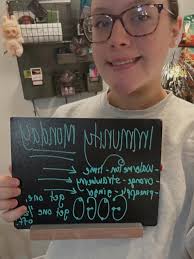 Immunity Monday
- Watermelon - lime
- orange - strawberry
- pineapple - ginger
GOGO
get one,
get one ½
off.